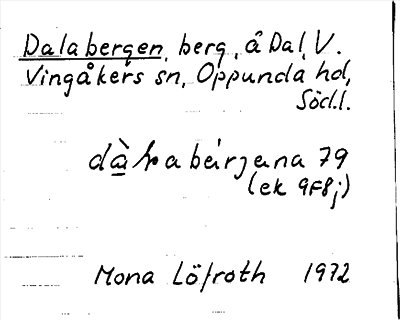 Dalabergen, berg, å Dal, V.
Vingåkers sn, Oppunda hd,
Södl.
79
(ek 9F8j)
Mona Löfroth 1972